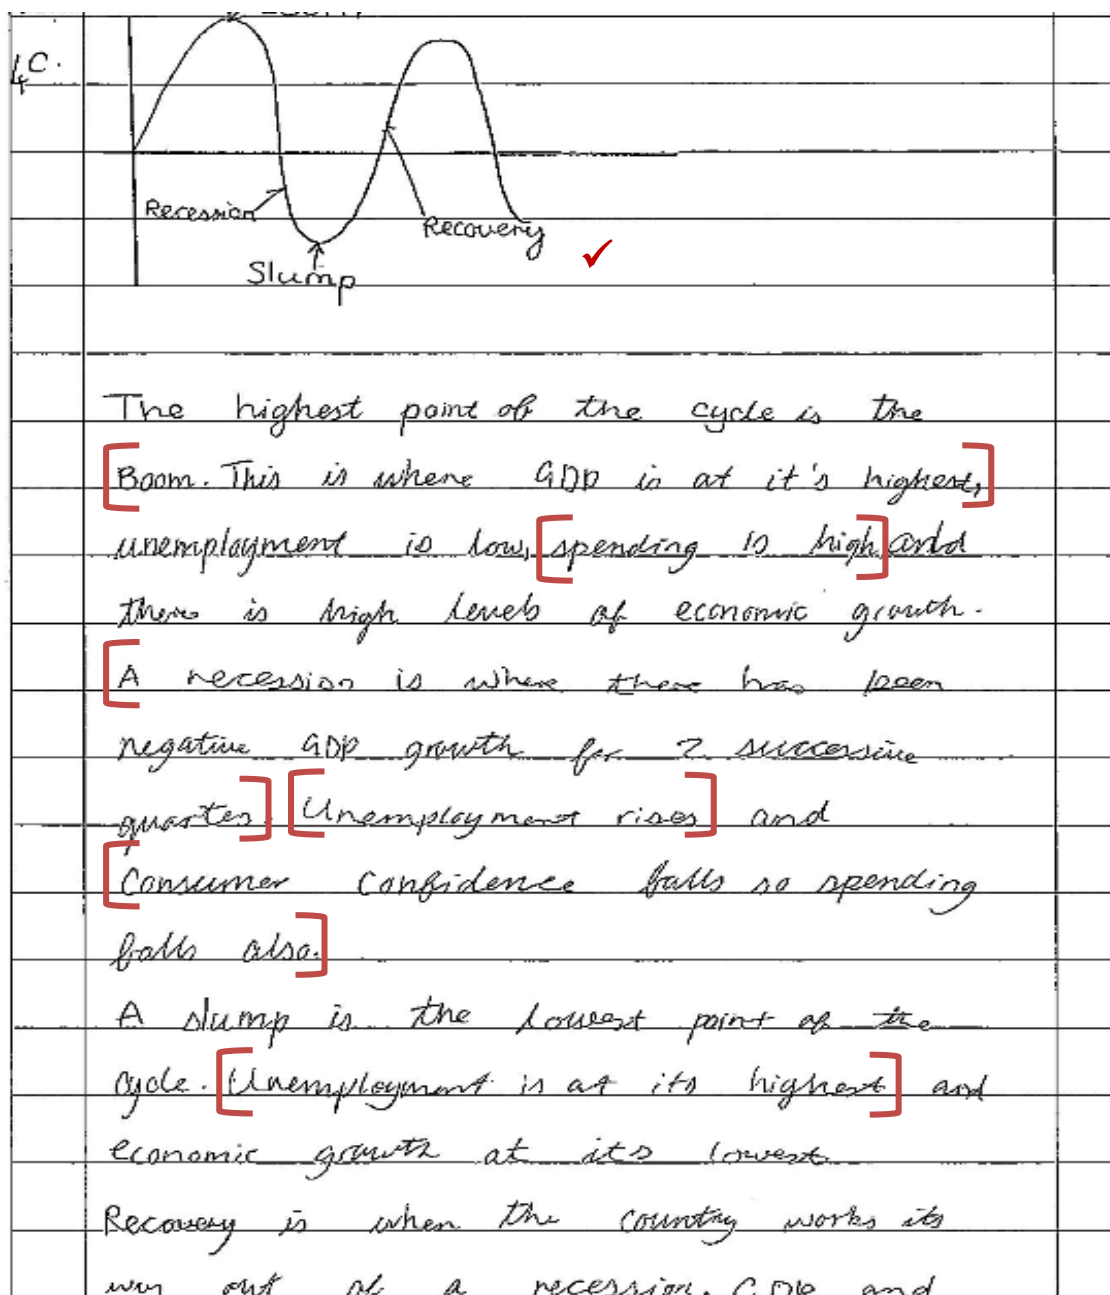 4C.
Recession
Recovery
Slump
The highest point of the cycle is the
Boom. This is where GDP is at it's highest,
unemployment is low, spending is high and
there is high levels of economic growth.
A recession is where there has been
negative GDP growth for 2 successive
quarters. Unemployment rises and
Consumer Confidence falls so spending
falls also.
A slump is the lowest point of the
cycle. Unemployment is at its highest and
economic growth at its lowest.
Recovery is when the country works its
way out of a recession. GDP and